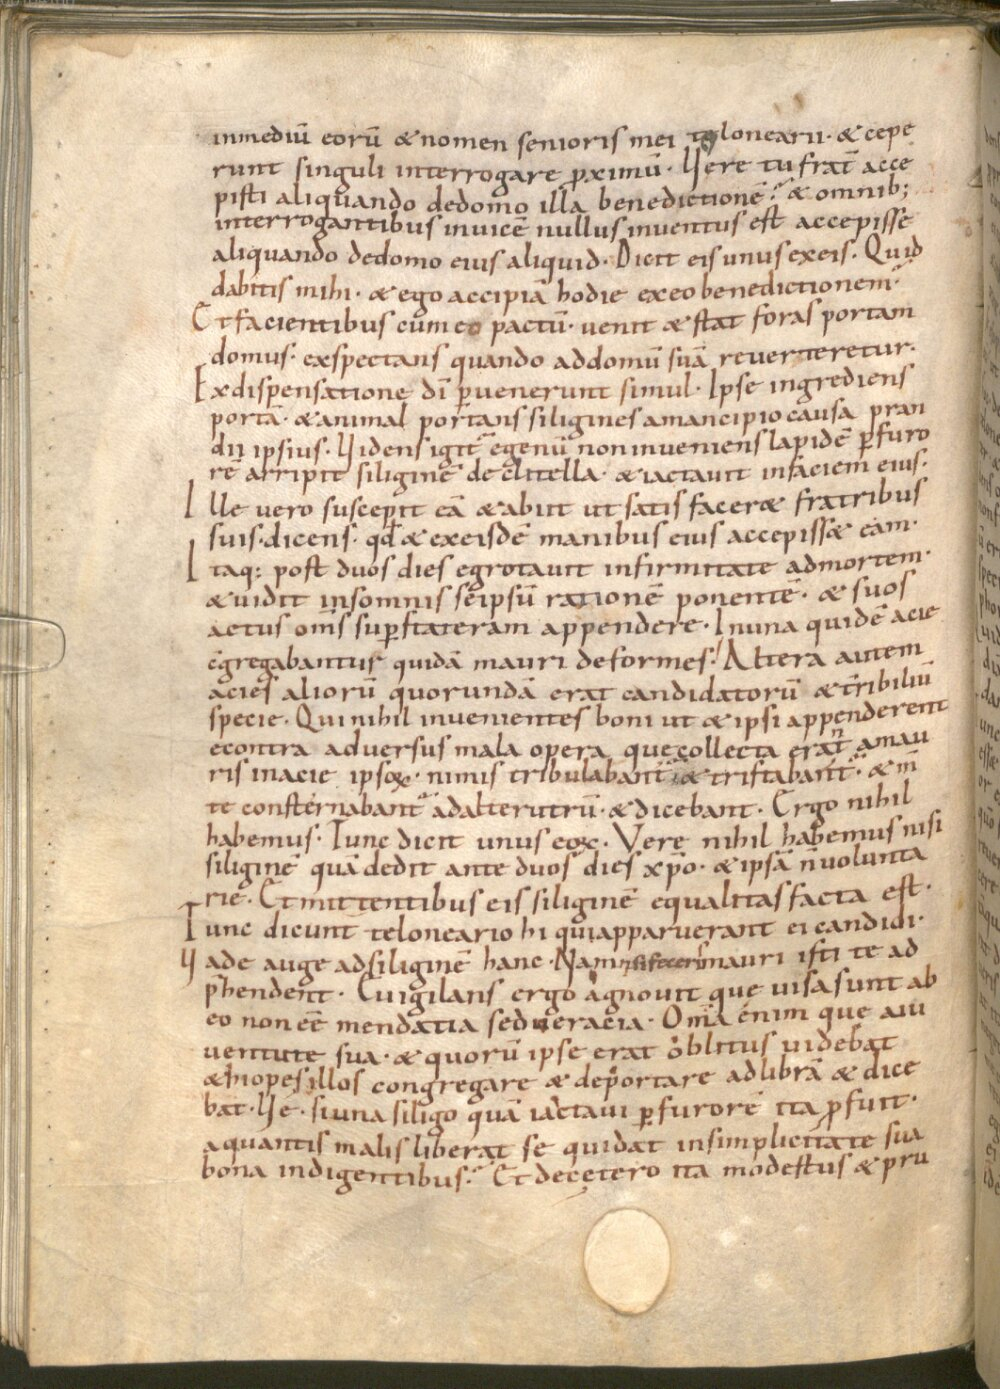 inmediū eorū &nomen senioris mei telonearii· & cepe
runt singuli interrogare p̱ximū· Vere tu frat̄ acce
pisti aliquando dedomo illa benedictionē· & omnib;
interrogantibus invicē nullus inventus est accepisse
aliquando dedomo eius aliquid· Dicit eis unus exeis· Quid
dabitis mihi· & ego accipiā hodie exeo benedictionem·
Et facientibus cum eo pactū· venit & stat foras portam
domus· exspectans quando addomū suā reverteretur·
Ex dispensatione dī ꝑvenerunt simul· Ipse ingrediens
portā· & animal portans siligines amancipio causa pran
dii ipsius· Videns igit᷑ egenū non inveniens lapidē ꝑ furo
rē arripit siliginē de clitella· & iactavit infaciem eius·
Ille vero suscepit eā & abiit ut satis facer& fratribus
suis· dicens· qđ & exeisdē manibus eius accepiss& eam·
Itaq: post duos dies egrotavit infirmitate admortem·
& vidit insomnis se ipsū rationē ponentē· & suos
actus om̄s suꝑ stateram appendere· Inuna quidē acie
c̄gregabantur quidā mauri deformes· Altera autem
acies aliorū quorundā erat candidatorū & tr̄ibiliū
specie· Qui nihil invenientes boni ut & ipsi appenderent
econtra adversus mala opera que collecta erant amau
ris inacie ipsoꝝ· nimis tribulabant᷑ & tristabant᷑· & m̄
te consternabant᷑ adalterutrū· & dicebant· Ergo nihil
habemus· Tunc dicit unus eoꝝ· Vere nihil habemus nisi
siliginē quā dedit ante duos dies xp̄o· & ipsā n̄ volunta
rie· Et mittentibus eis siliginē equalitas facta est·
Tunc dicunt teloneario hi qui apparuerant ei candidi·
Vade auge ad siliginē hanc· Nam nisi feceris mauri isti te ad
p̄hendent· Evigilans ergo agnovit que visa sunt ab
eo non eē mendatia sed veracia· Om̄ia enim que aiu
ventute sua· & quorū ipse erat oblitus videbat
& hiopes illos congregare & deportare adlibrā & dice
bat· Ve· si una siligo quā iactavi ꝑ furorē ita ꝓfuit·
aquantis malis liberat se qui dat insimplicitate sua
bona indigentibus· Et decetero ita modestus & pru